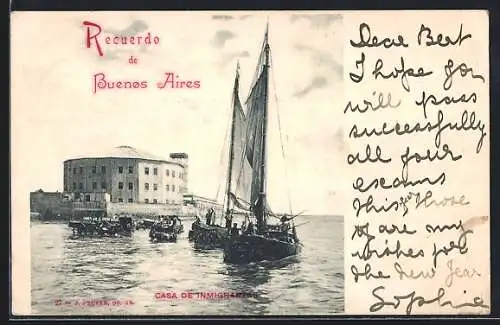 Recuerdo
de
Buenos Aires
Dear Bert
I hope you
will pass
successfully
all your
exams
this year
are my
wishes for
the New Year
Sophie
CASA DE INMIGRANTES
27 — J. PEUSER, BS. AS.